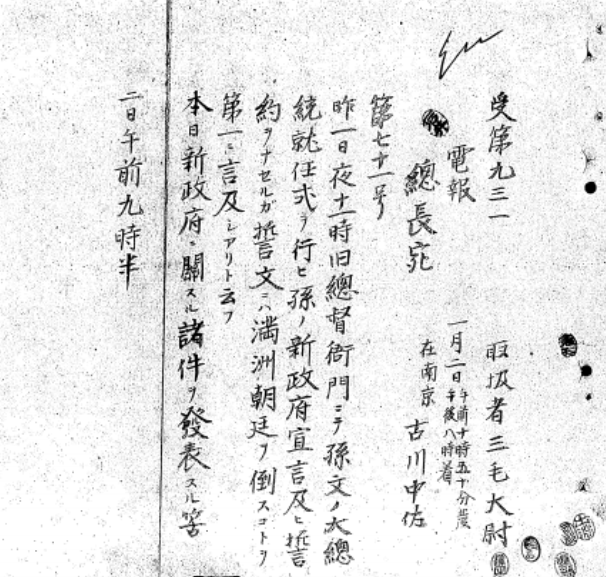 受第九三一
取扱者三毛大尉
電報
一月二日午前十時五十分發
午後八時着
總長宛
在南京 古川中佐
第七十一号
昨一日夜十一時旧總督衙門ニテ孫文ノ大總
統就任式ヲ行ヒ孫ノ新政府宣言及ヒ誓
約ヲナセルガ誓文ニハ満洲朝廷ヲ倒スコトヲ
第一ニ言及シアリト云フ
本日新政府ニ關スル諸件ヲ發表スル筈
二日午前九時半